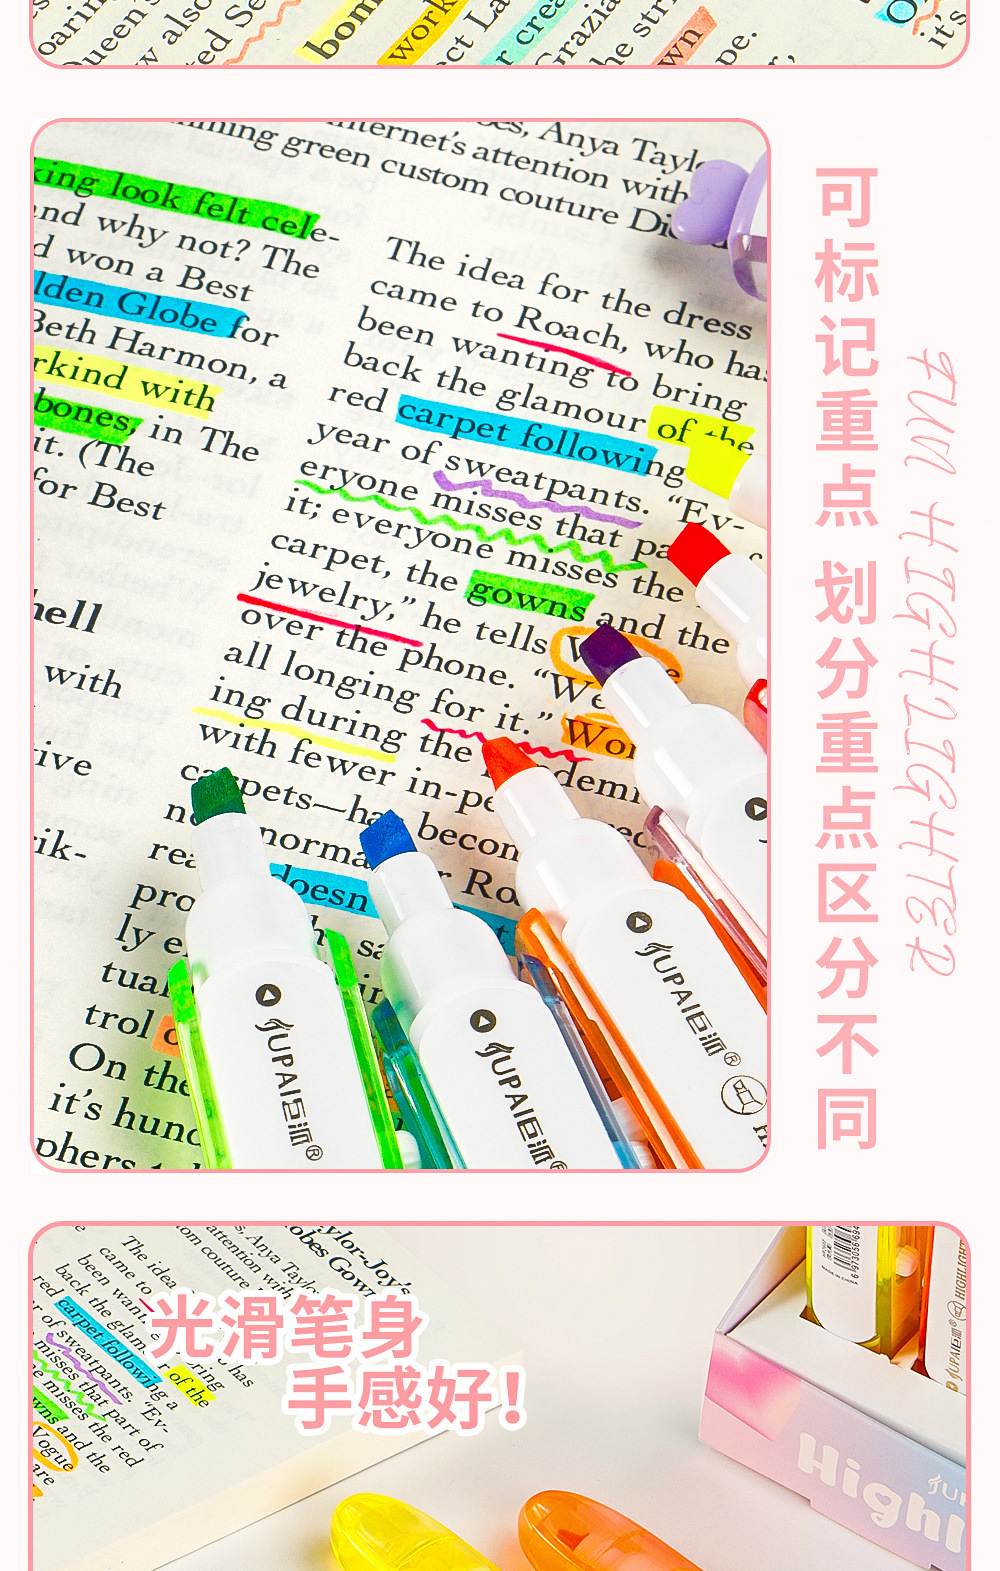 oaring
Queens
w also
ted Se
bom
work
ect La
r crea
Grazia
he stri
own
ope.
it's
Anya Tayl
internet's attention with
green custom couture
king look felt cele-
and why not? The
d won a Best
lden Globe for
Beth Harmon, a
rkind with
bones, in The
it. (The
for Best
hell
with
tive
rik-
The idea for the dress
came to Roach, who has
been wanting to bring
back the glamour of the
red carpet following
year of sweatpants. “Ev-
eryone misses that pa
it; everyone misses the
carpet, the gowns and the
jewelry,” he tells
over the phone. “We
all longing for it.” Wor
ing during the
with fewer in-pe
carpets—ha becom
normal
doesn
pro
ly e
tual
trol
On the
it's hund
phers
JUPAI巨派®
JUPAI巨派®
JUPAI巨派®
可标记重点 划分重点区分不同
FUN HIGHLIGHTER
光滑笔身
手感好！
ylor-Joy's
obes Gown
Anya Taylor
attention with
om couture
The idea
came to
been want
back the glam
red carpet following a
of the
has
of sweatpants. “Ev-
misses that part of
misses the red
wns and the
Vogue
are
MADE IN CHINA
JUPAI巨派® HIGHLIGHT
Highl